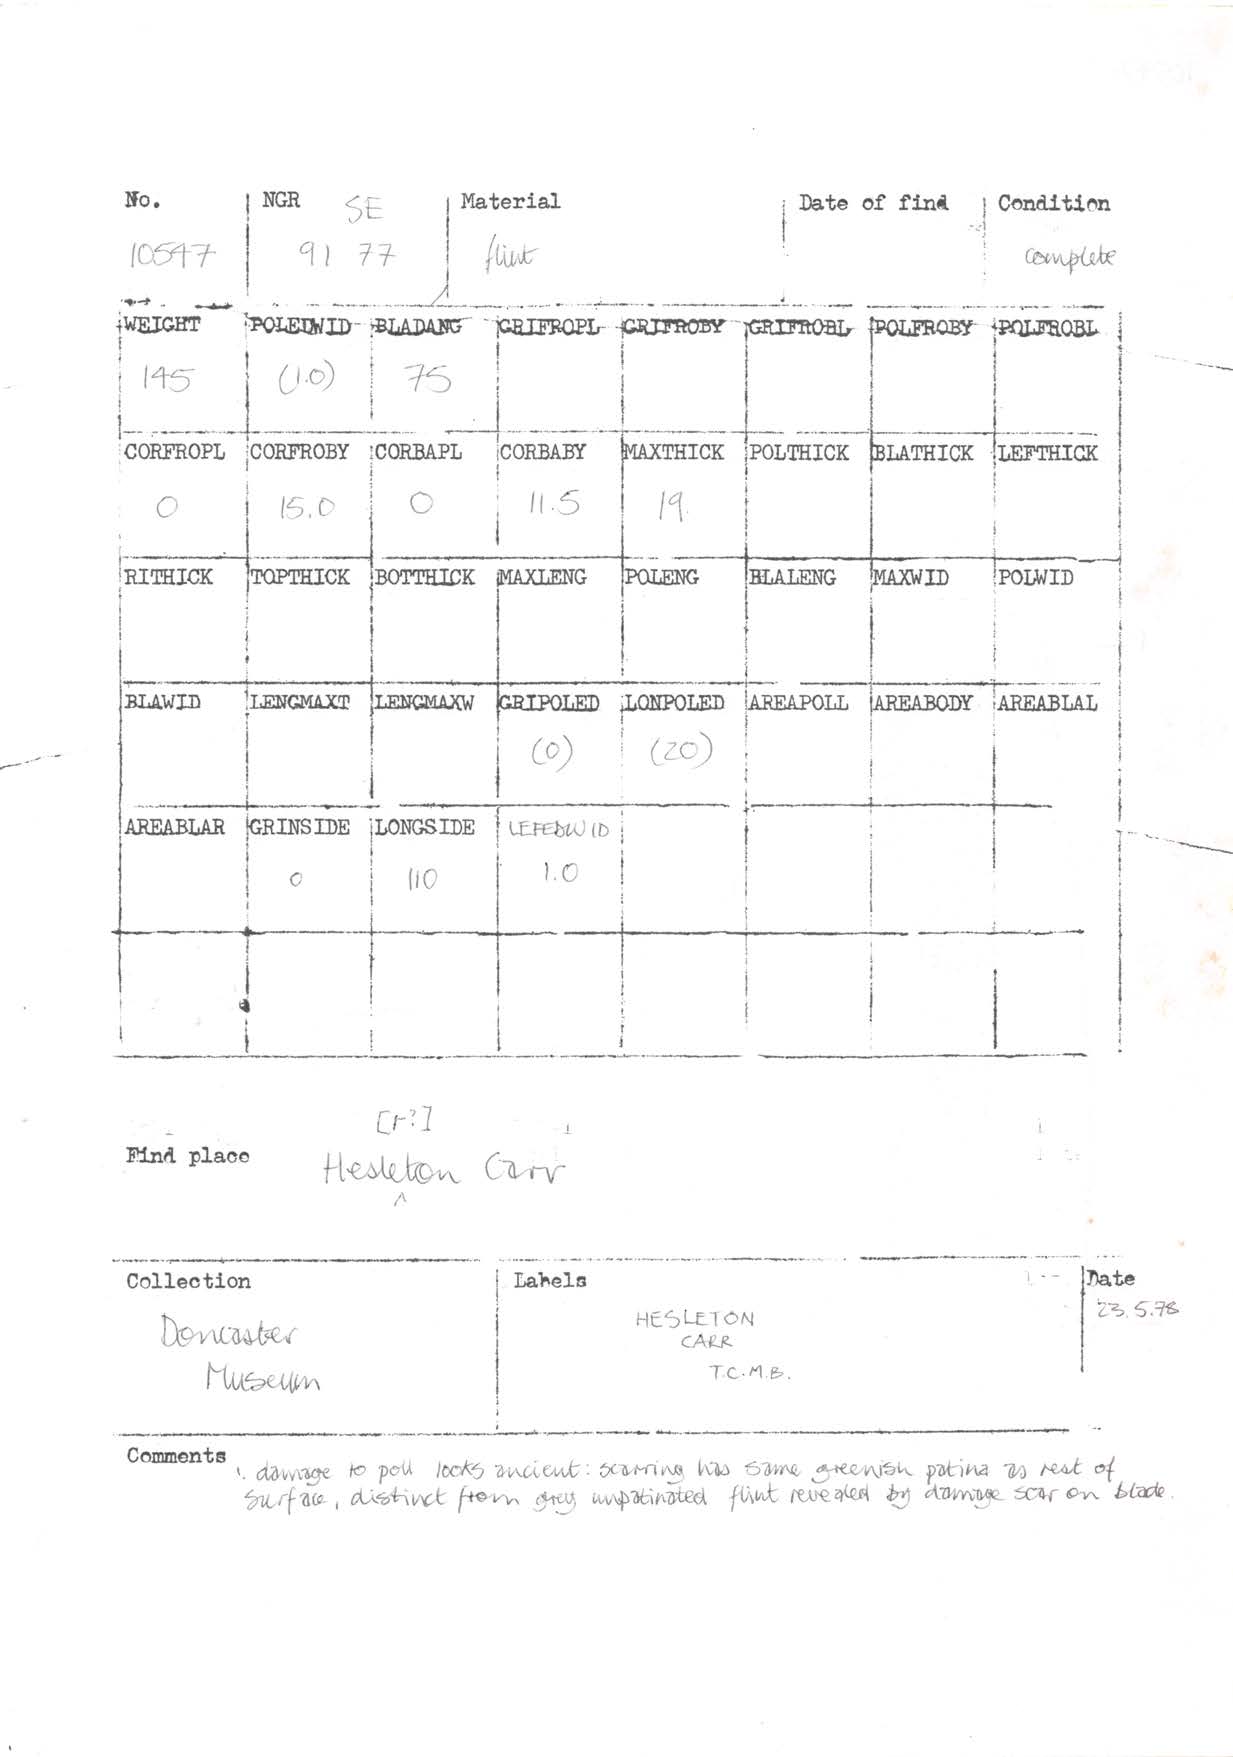 No. NGR SE Material Date of find Condition
10547 91 77 flint complete
WEIGHT POLEDWID BLADANG GRIFROPL GRIFROBY GRIFROBL POLFROBY POLFROBL
145 (1.0) 75
CORFROPL CORFROBY CORBAPL CORBABY MAXTHICK POLTHICK BLATHICK LEFTHICK
0 15.0 0 11.5 19
RITHICK TOPTHICK BOTTHICK MAXLENG POLENG BLALENG MAXWID POLWID
BLAWID LENGMAXT LENGMAXW GRIPOLED LONPOLED AREAPOLL AREABODY AREABLAL
(0) (20)
AREABLAR GRINSIDE LONGSIDE LEFEDWID
0 110 1.0
[r?]
Find place Hesleton Carr
^
Collection Labels Date
Doncaster HESLETON 23.5.78
Museum CARR
T.C.M.B.
Comments
damage to poll looks ancient: scarring has same greenish patina as rest of
surface, distinct from grey unpatinated flint revealed by damage scar on blade.